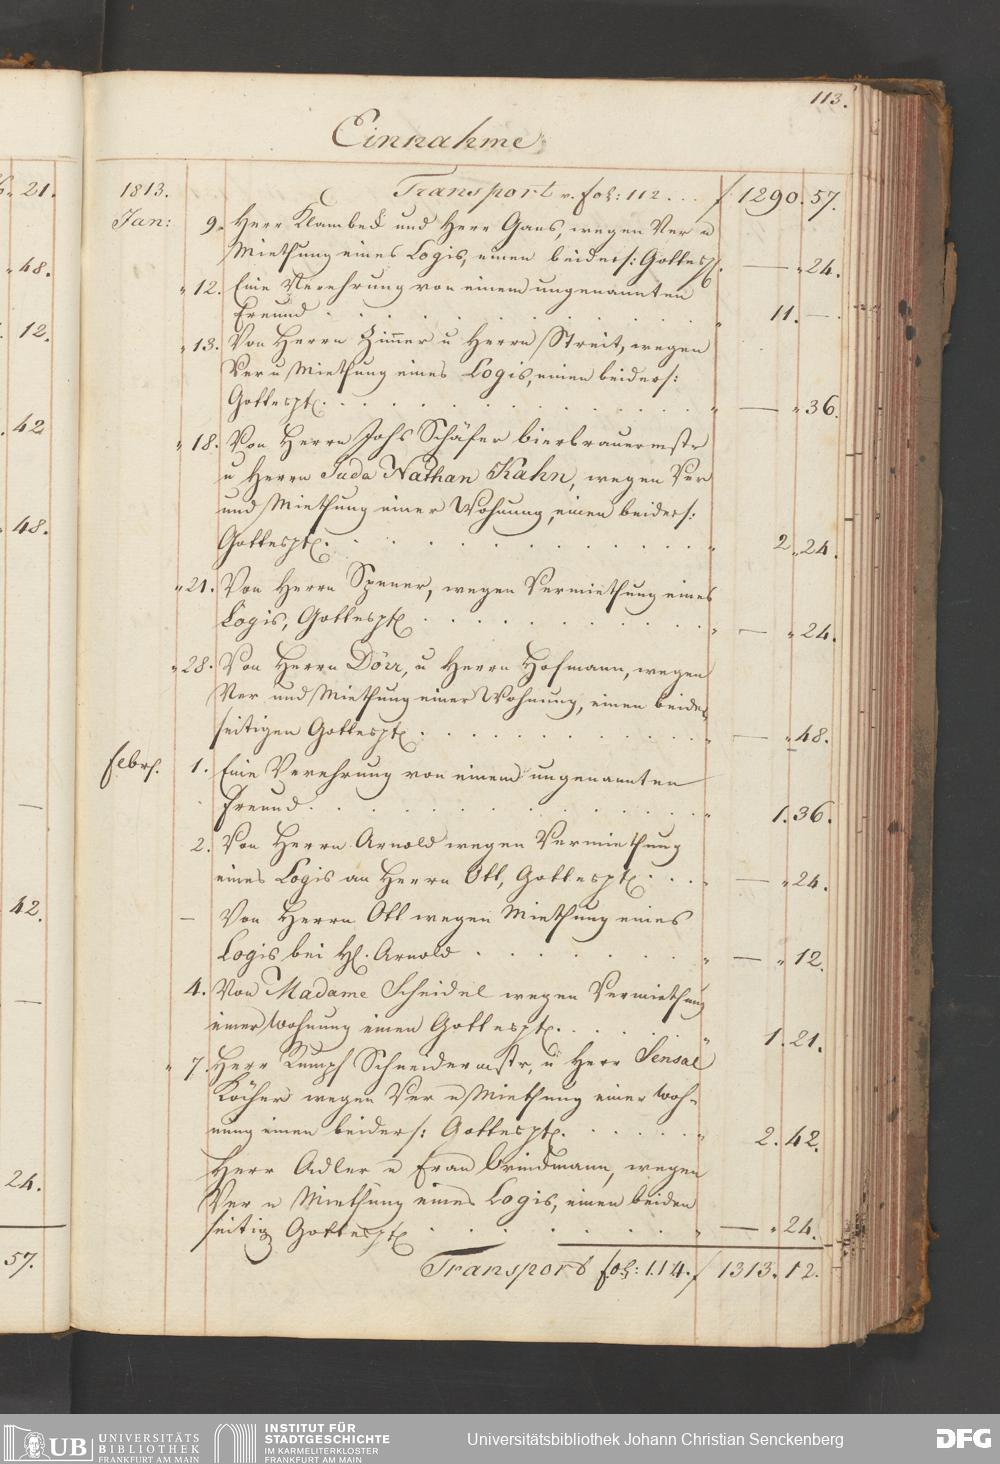 113.
Einnahme
1813. Transport v. fol: 112 . . . f 1290. 57.
Jan: 9. Herr Klambek und Herr Gans, wegen Ver u
Miethung eines Logis, einen beiders: Gottespf. — „ 24.
„ 12. Eine Verehrung von einem ungenannten
Freund . . . . „ 11. —
„ 13. Von Herrn Zimer u Herrn Streit, wegen
Ver u Miethung eines Logis, einen beiders:
Gottespf. . . . . „ — „ 36.
„ 18. Von Herrn Johs Schäfer bierbrauermstr
u Herrn Juda Nathan Kahn, wegen Ver
und Miethung einer Wohnung, einen beiders:
Gottespf. . . . . „ 2 „ 24.
„ 21. Von Herrn Spener, wegen Vermiethung eines
Logis, Gottespf . . . . „ — „ 24.
„ 28. Von Herrn Dörr, u Herrn Hofmann, wegen
Ver und Miethung einer Wohnung, einen beider
seitigen Gottespf . . . . „ — „ 48.
Febr. 1. Eine Verehrung von einem ungenannten
Freund . . . . „ 1. 36.
2. Von Herrn Arnold wegen Vermiethung
eines Logis an Herrn Ott, Gottespf . . . „ — „ 24.
— Von Herrn Ott wegen Miethung eines
Logis bei H. Arnold . . . . „ — „ 12.
4. Von Madame Scheidel wegen Vermiethung
einer Wohnung einen Gottespf. . . . „ 1. 21.
„ 7. Herr Rumpf Schneidermstr, u Herr Sensal
Köcher wegen Ver u Miethung einer Woh-
nung einen beiders: Gottespf. . . . „ 2. 42.
Herr Adler u Frau Brindmann, wegen
Ver u Miethung eines Logis, einen beider
seitig Gottespf . . . . „ — „ 24.
Transport fol: 114. f 1313. 12.
21.
„ 48.
12.
. 42
„ 48.
—
42.
—
24.
57.
UB UNIVERSITÄTS
BIBLIOTHEK
FRANKFURT AM MAIN
INSTITUT FÜR
STADTGESCHICHTE
IM KARMELITERKLOSTER
FRANKFURT AM MAIN
Universitätsbibliothek Johann Christian Senckenberg
DFG